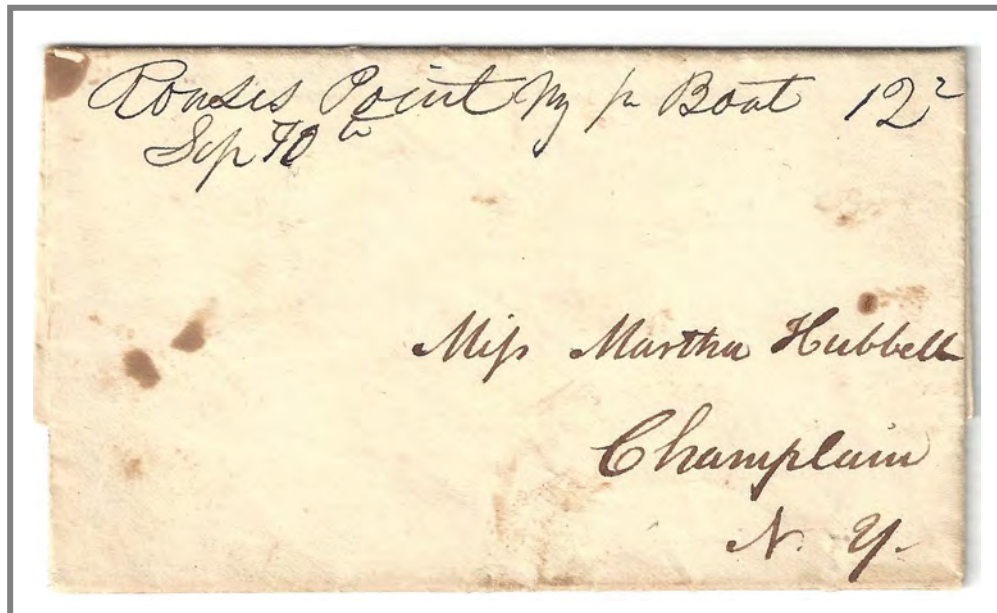 Rouses Point Ny pr Boat 12 2
Sep 10 th
Miss Martha Hubbell
Champlain
N. Y.